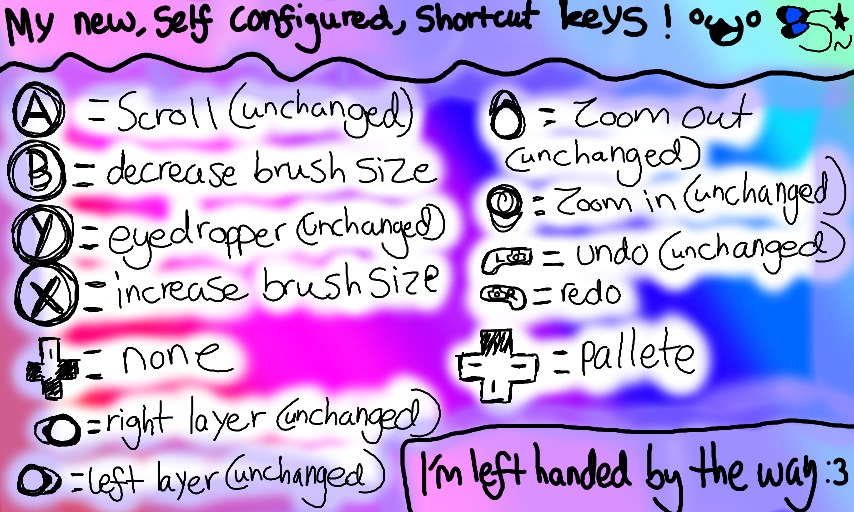 My new, self configured, shortcut keys!
A = Scroll (unchanged)
B = decrease brush size
Y = eyedropper (unchanged)
X = increase brush size
= none
= right layer (unchanged)
= left layer (unchanged)
= Zoom out
(unchanged)
= Zoom in (unchanged)
L = undo (unchanged)
R = redo
= pallete
I'm left handed by the way :3